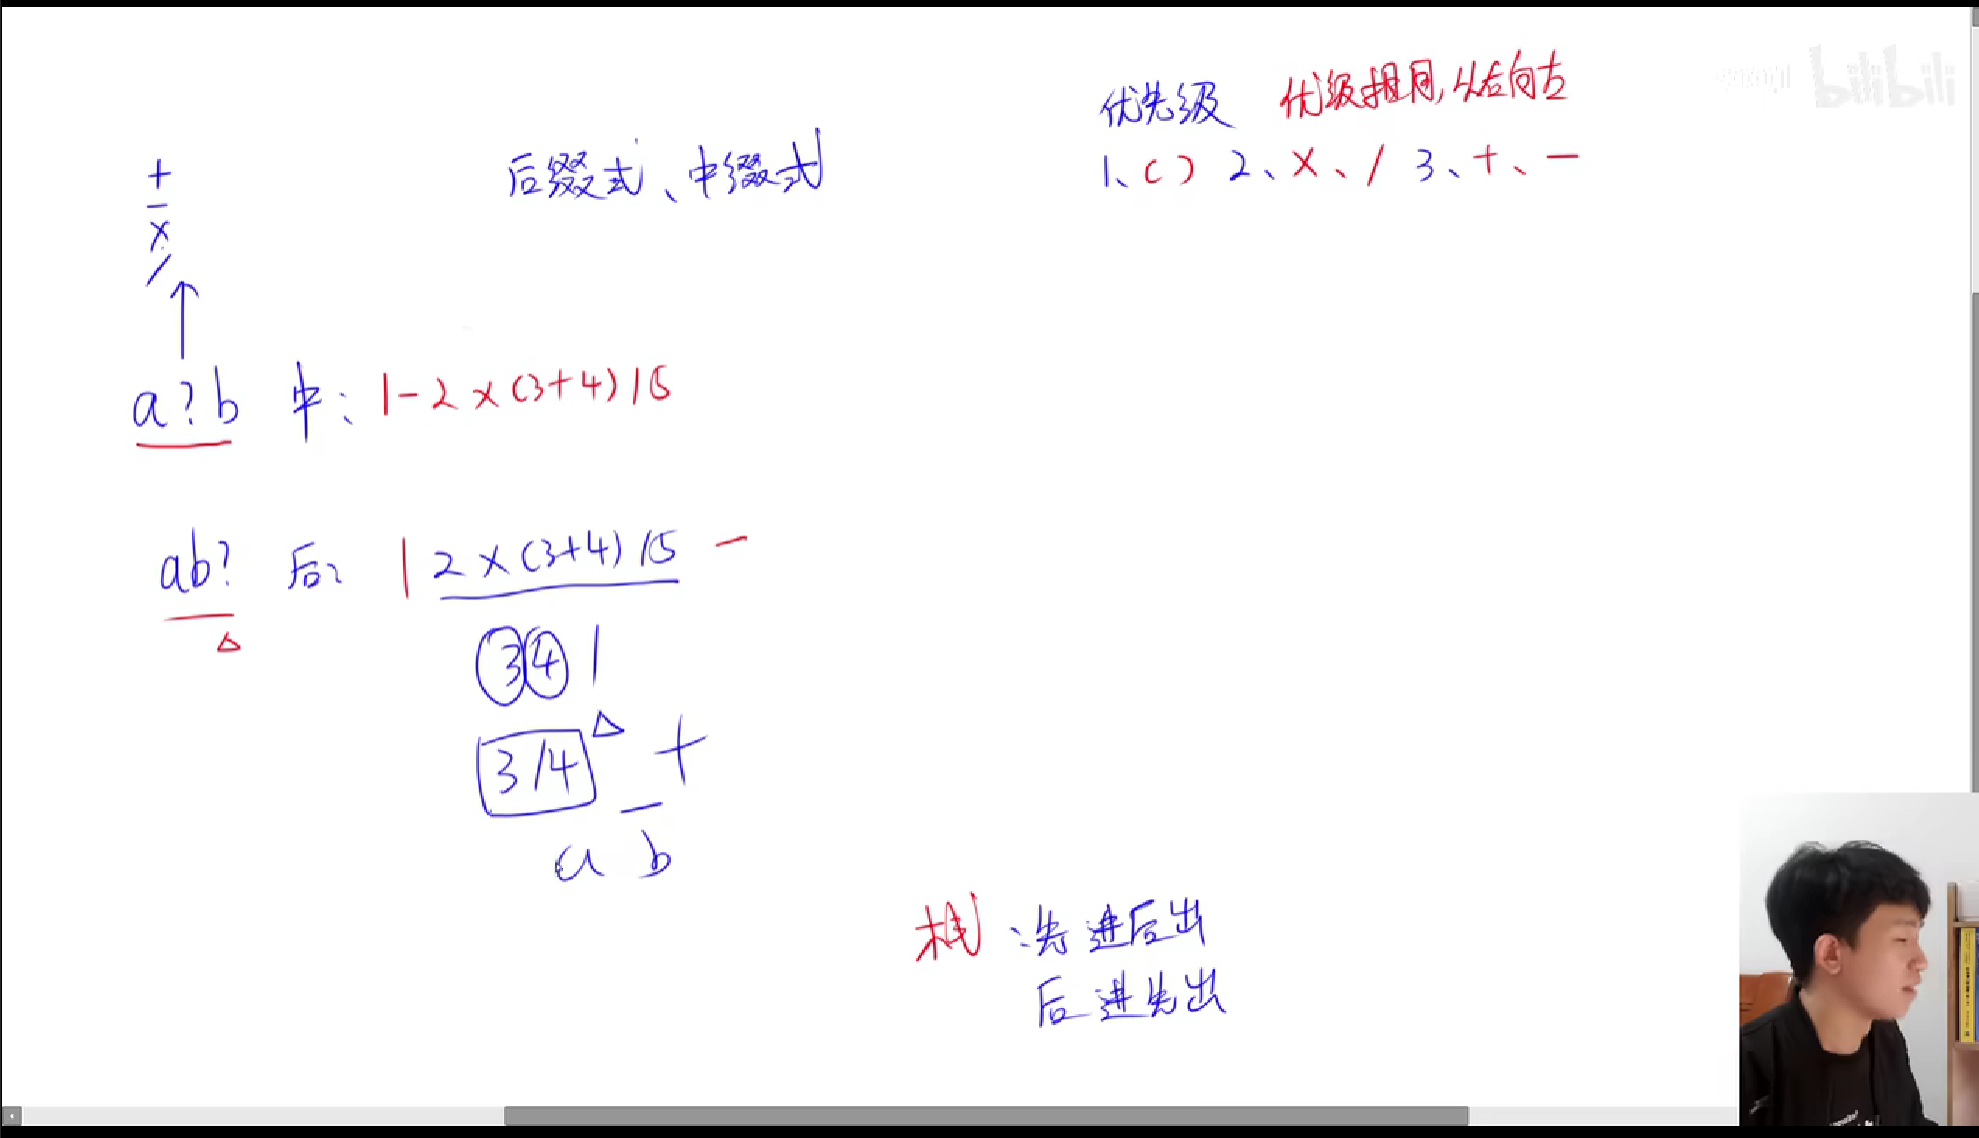 bilibili
优先级 优级相同,从右向左
1、() 2、×、/ 3、+、-
后缀式、中缀式
+
-
×
/
a?b 中: 1-2×(3+4)/5
ab? 后: 1 2×(3+4)/5 -
3 4 /
3/4 +
a b
栈:先进后出
后进先出